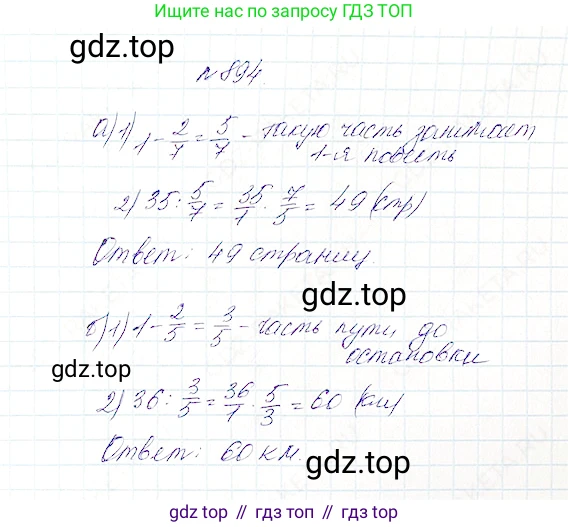 Ищите нас по запросу ГДЗ ТОП
gdz.top
№894.
а) 1) 1 - 2/7 = 5/7 - такую часть занимает
1-я повесть
2) 35 : 5/7 = 35/1 · 7/5 = 49 (стр)
Ответ: 49 страниц.
gdz.top
б) 1) 1 - 2/5 = 3/5 - часть пути до
остановки
gdz.top
2) 36 : 3/5 = 36/1 · 5/3 = 60 (км)
Ответ: 60 км.
gdz.top
gdz.top // гдз топ // гдз.топ